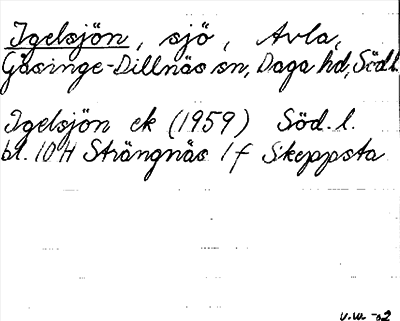 Igelsjön, sjö, Avla,
Gåsinge-Dillnäs sn, Daga hd, Södl.
Igelsjön ek (1959) Söd. l.
bl. 10 H Strängnäs 1 f Skeppsta
v.w. -02